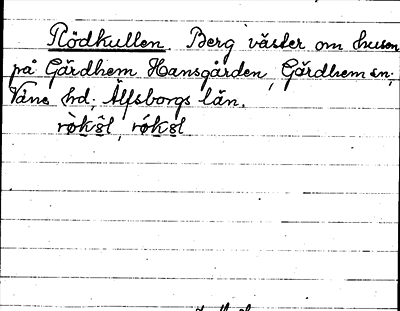 Rödkullen. Berg väster om husen
på Gärdhem Hansgården, Gärdhem sn,
Väne hd, Älfsborgs län.